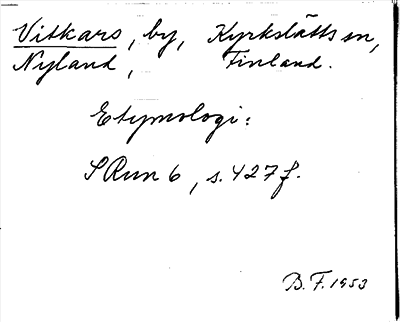 Vitkars, by, Kyrkslätts sn,
Nyland, Finland.
Etymologi:
SRun 6, s. 427 f.
B. F. 1953